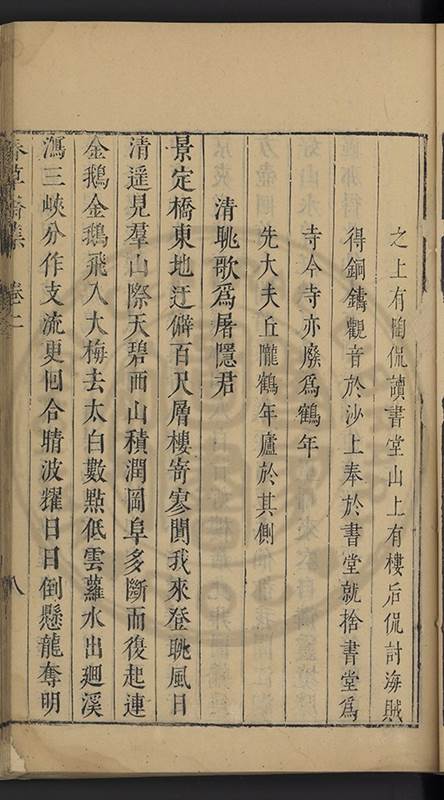 之上有陶侃讀書堂山上有樓后侃討海賊
得銅鑄觀音於沙上奉於書堂就捨書堂爲
寺今寺亦廢爲鶴年
先大夫丘隴鶴年廬於其側
清眺歌爲屠隱君
景定橋東地迂僻百尺層樓寄寥闃我來登眺風日
清遥見羣山際天碧西山積潤岡阜多斷而復起連
金鵝金鵝飛入大梅去太白數點低雲蘿水出廻溪
瀉三峽分作支流更回合晴波耀日日倒懸龍奪明
春草齋集 卷二 八